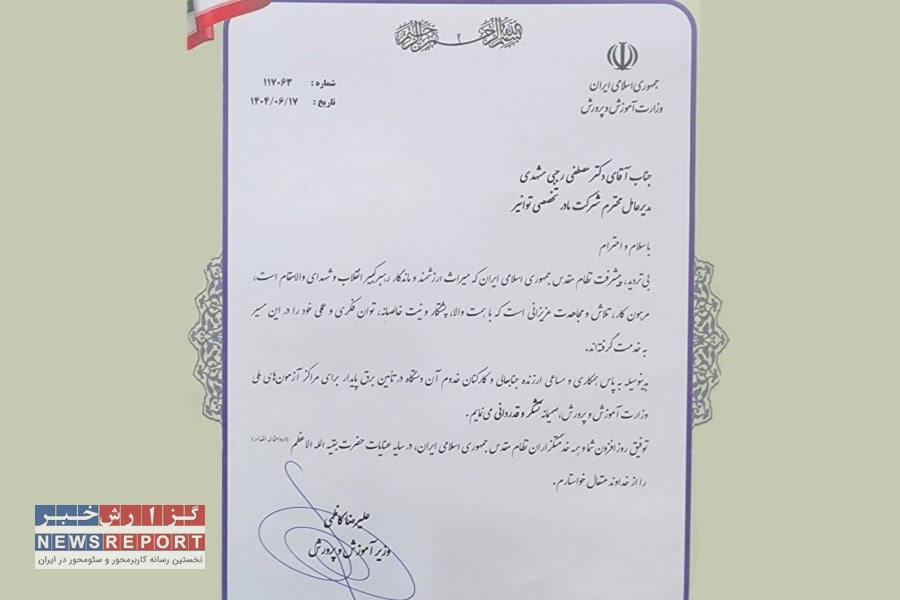 بسم الله الرحمن الرحیم
جمهوری اسلامی ایران
وزارت آموزش و پرورش
شماره : ۱۱۷۰۶۳
تاریخ : ۱۴۰۴/۰۶/۱۷
جناب آقای دکتر مصطفی رجبی مشهدی
مدیرعامل محترم شرکت مادر تخصصی توانیر
با سلام و احترام
بی تردید، پیشرفت نظام مقدس جمهوری اسلامی ایران که میراث ارزشمند و ماندگار رهبر کبیر انقلاب و شهدای والامقام است،
مرهون کار، تلاش و مجاهدت عزیزانی است که با همت والا، پشتکار و نیت خالصانه، توان فکری و عملی خود را در این مسیر
به خدمت گرفته‌اند.
بدینوسیله به پاس همکاری و مساعی ارزنده جنابعالی و کارکنان خدوم آن دستگاه در تأمین برق پایدار برای مراکز آزمون‌های ملی
وزارت آموزش و پرورش، صمیمانه تشکر و قدردانی می‌نمایم .
توفیق روزافزون شما و همه خدمتگزاران نظام مقدس جمهوری اسلامی ایران، در سایه عنایات حضرت بقیة الله الاعظم (ارواحنا له الفداء)
را از خداوند متعال خواستارم .
علیرضا کاظمی
وزیر آموزش و پرورش
گزارش خبر
NEWSREPORT
نخستین رسانه کاربرمحور و سئومحور در ایران